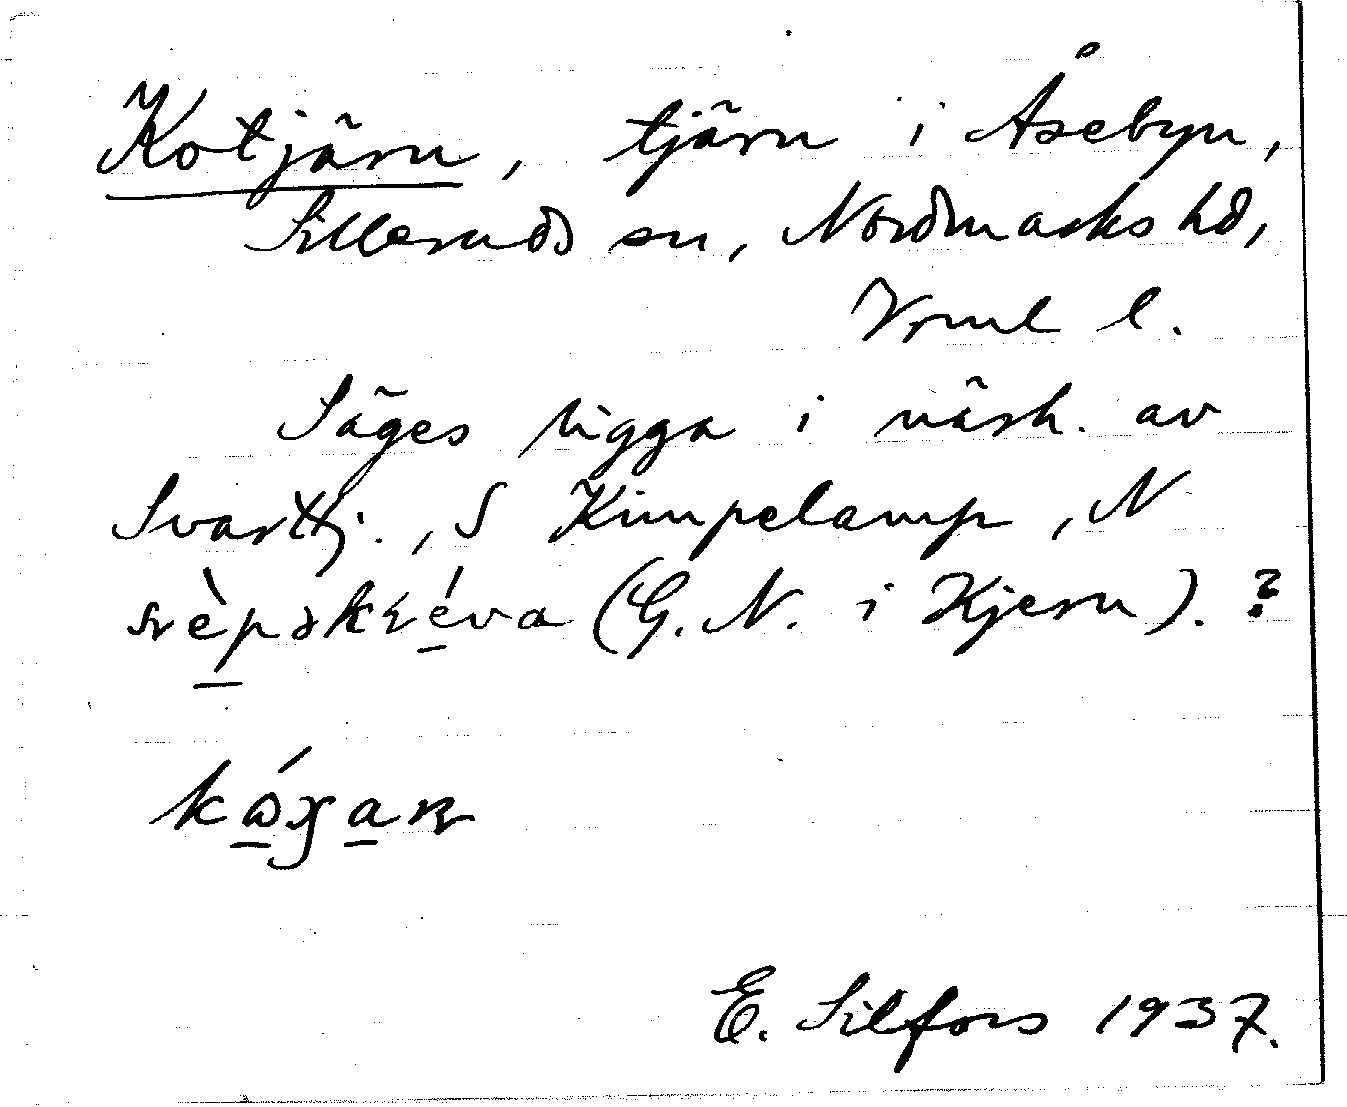 Kotjärn, tjärn i Åsebyn,
Silleruds sn, Nordmarks hd,
Vrml l.
Säges ligga i närh. av
Svarttj., S Kimpelamp, N
(G. N. i Kjern). ?
E. Silfors 1937.